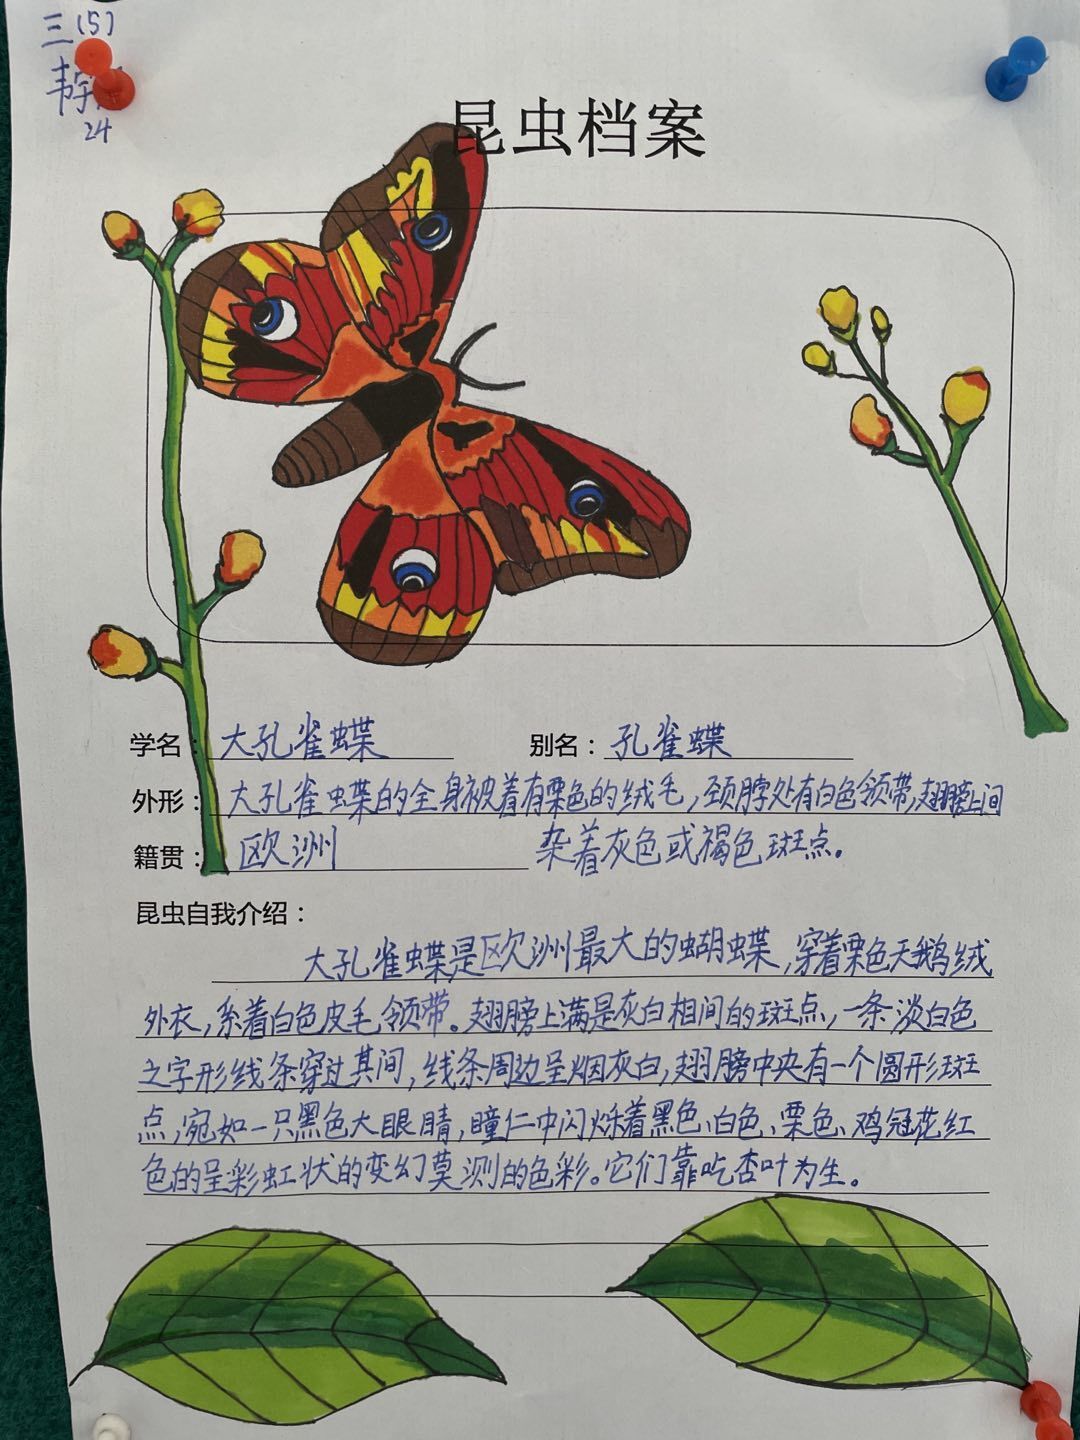 三(5)
韦宇
24
昆虫档案
学名：大孔雀蝶 别名：孔雀蝶
外形：大孔雀蝶的全身被着有栗色的绒毛，颈脖处有白色领带，翅膀上间
籍贯：欧洲 杂着灰色或褐色斑点。
昆虫自我介绍：
大孔雀蝶是欧洲最大的蝴蝶，穿着栗色天鹅绒
外衣，系着白色皮毛领带。翅膀上满是灰白相间的斑点，一条淡白色
之字形线条穿过其间，线条周边呈烟灰白，翅膀中央有一个圆形斑
点，宛如一只黑色大眼睛，瞳仁中闪烁着黑色、白色、栗色、鸡冠花红
色的呈彩虹状的变幻莫测的色彩。它们靠吃杏叶为生。